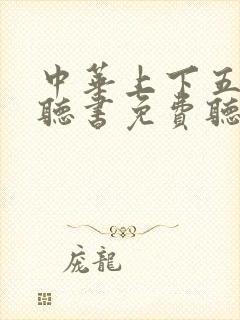 中華上下五
聽書免費聽
庞龍